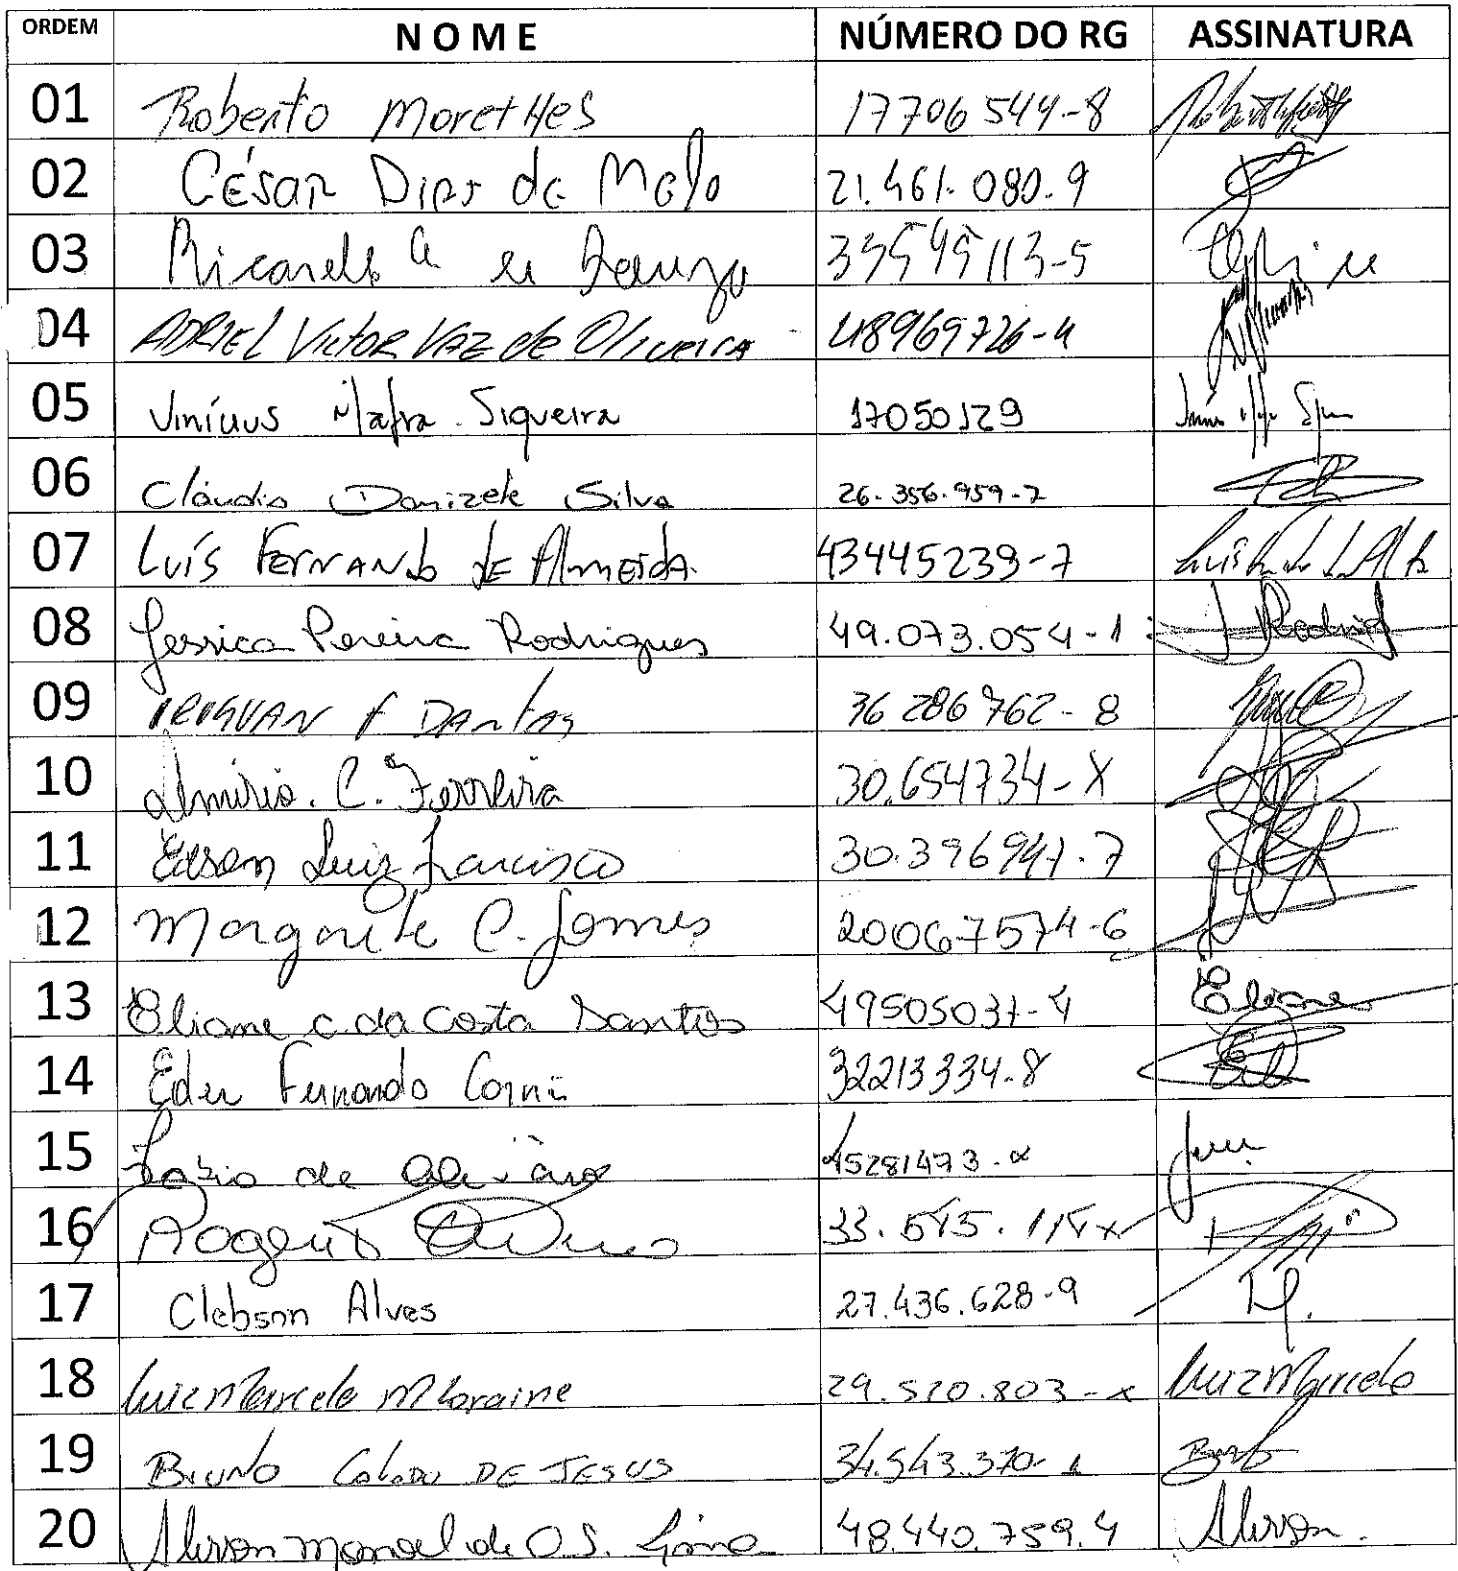 ORDEM NOME NÚMERO DO RG ASSINATURA
01 Roberto Moretthes 17706544-8
02 César Dias de Melo 21.461.080-9
03 Ricardo a 33545113-5
04 ADRIEL VICTOR VAZ de Oliveira 48969726-4
05 Vinícius Mafra Siqueira 17050129
06 Cláudio Donizete Silva 26.356.959-7
07 Luís Fernando de Almeida. 43445239-7
08 Jessica Pereira Rodrigues 49.073.054-1 J Rodrig
09 F DANTAS 36 286 762-8
10 Almirio. C. Ferreira 30.654734-X
11 Edson Luiz 30.396941-7
12 Margarete C. Gomes 20067574-6
13 Eliane c. da Costa Santos 49505037-4 Eliane
14 Eder Fernando 32213334-8
15 de 45281473-x
16 Rogerio 33.545.114x
17 Clebson Alves 27.436.628-9
18 Luiz Marcelo M Loraine 29.520.803-x Luiz Marcelo
19 Bruno DE JESUS 34.543.370-1
20 Alisson Manoel de O.S. Lima 48.440.759.4 Alisson.